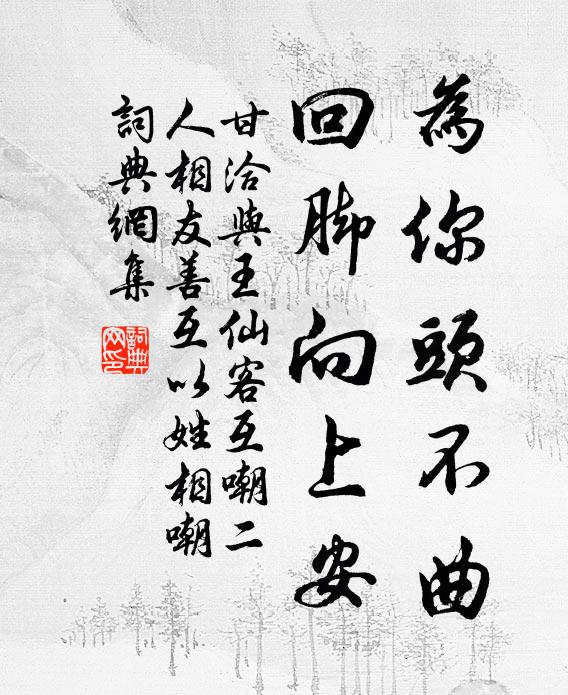 為你頭不曲
回脚向上安
甘洽與王仙客互嘲二
人相友善互以姓相嘲
詞典網集
詞典
网印